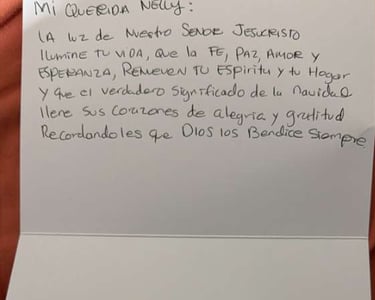 Mi QUERIDA NELLY:
LA luz de Nuestro SEÑOR JESUCRISTO
Ilumine TU VIDA, QUE LA FE, PAZ, AMOR Y
ESPERANZA, RENUEVEN TU Espiritu y tu Hogar
Y que el verdadero significado de la Navidad
llene sus corazones de alegria y gratitud
Recordandoles que DIOS los Bendice Siempre